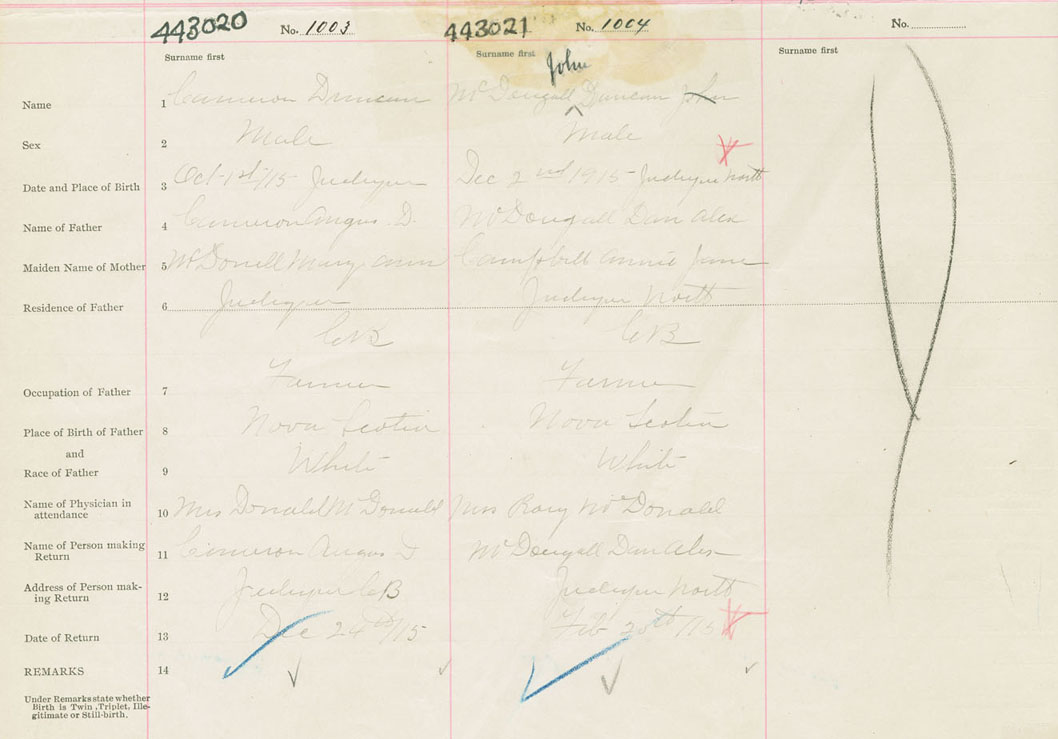 443020 No. 1003 443021 No. 1004 No.
Surname first Surname first Surname first
John
Name 1 Cameron Duncan McDougall Duncan John
Sex 2 Male Male
Date and Place of Birth 3 Oct 1st/15 Judique Dec 2nd 1915 Judique North
Name of Father 4 Cameron Angus D McDougall Dan Alex
Maiden Name of Mother 5 McDonell Mary Ann Campbell Annie Jane
Residence of Father 6 Judique Judique North
CB CB
Occupation of Father 7 Farmer Farmer
Place of Birth of Father 8 Nova Scotia Nova Scotia
and
Race of Father 9 White White
Name of Physician in
attendance 10 Mrs Donald McDonald Mrs Rory McDonald
Name of Person making
Return 11 Cameron Angus D McDougall Dan Alex
Address of Person mak-
ing Return 12 Judique CB Judique North
Date of Return 13 Dec 24th/15 Feb /15
REMARKS 14
Under Remarks state whether
Birth is Twin, Triplet, Ille-
gitimate or Still-birth.